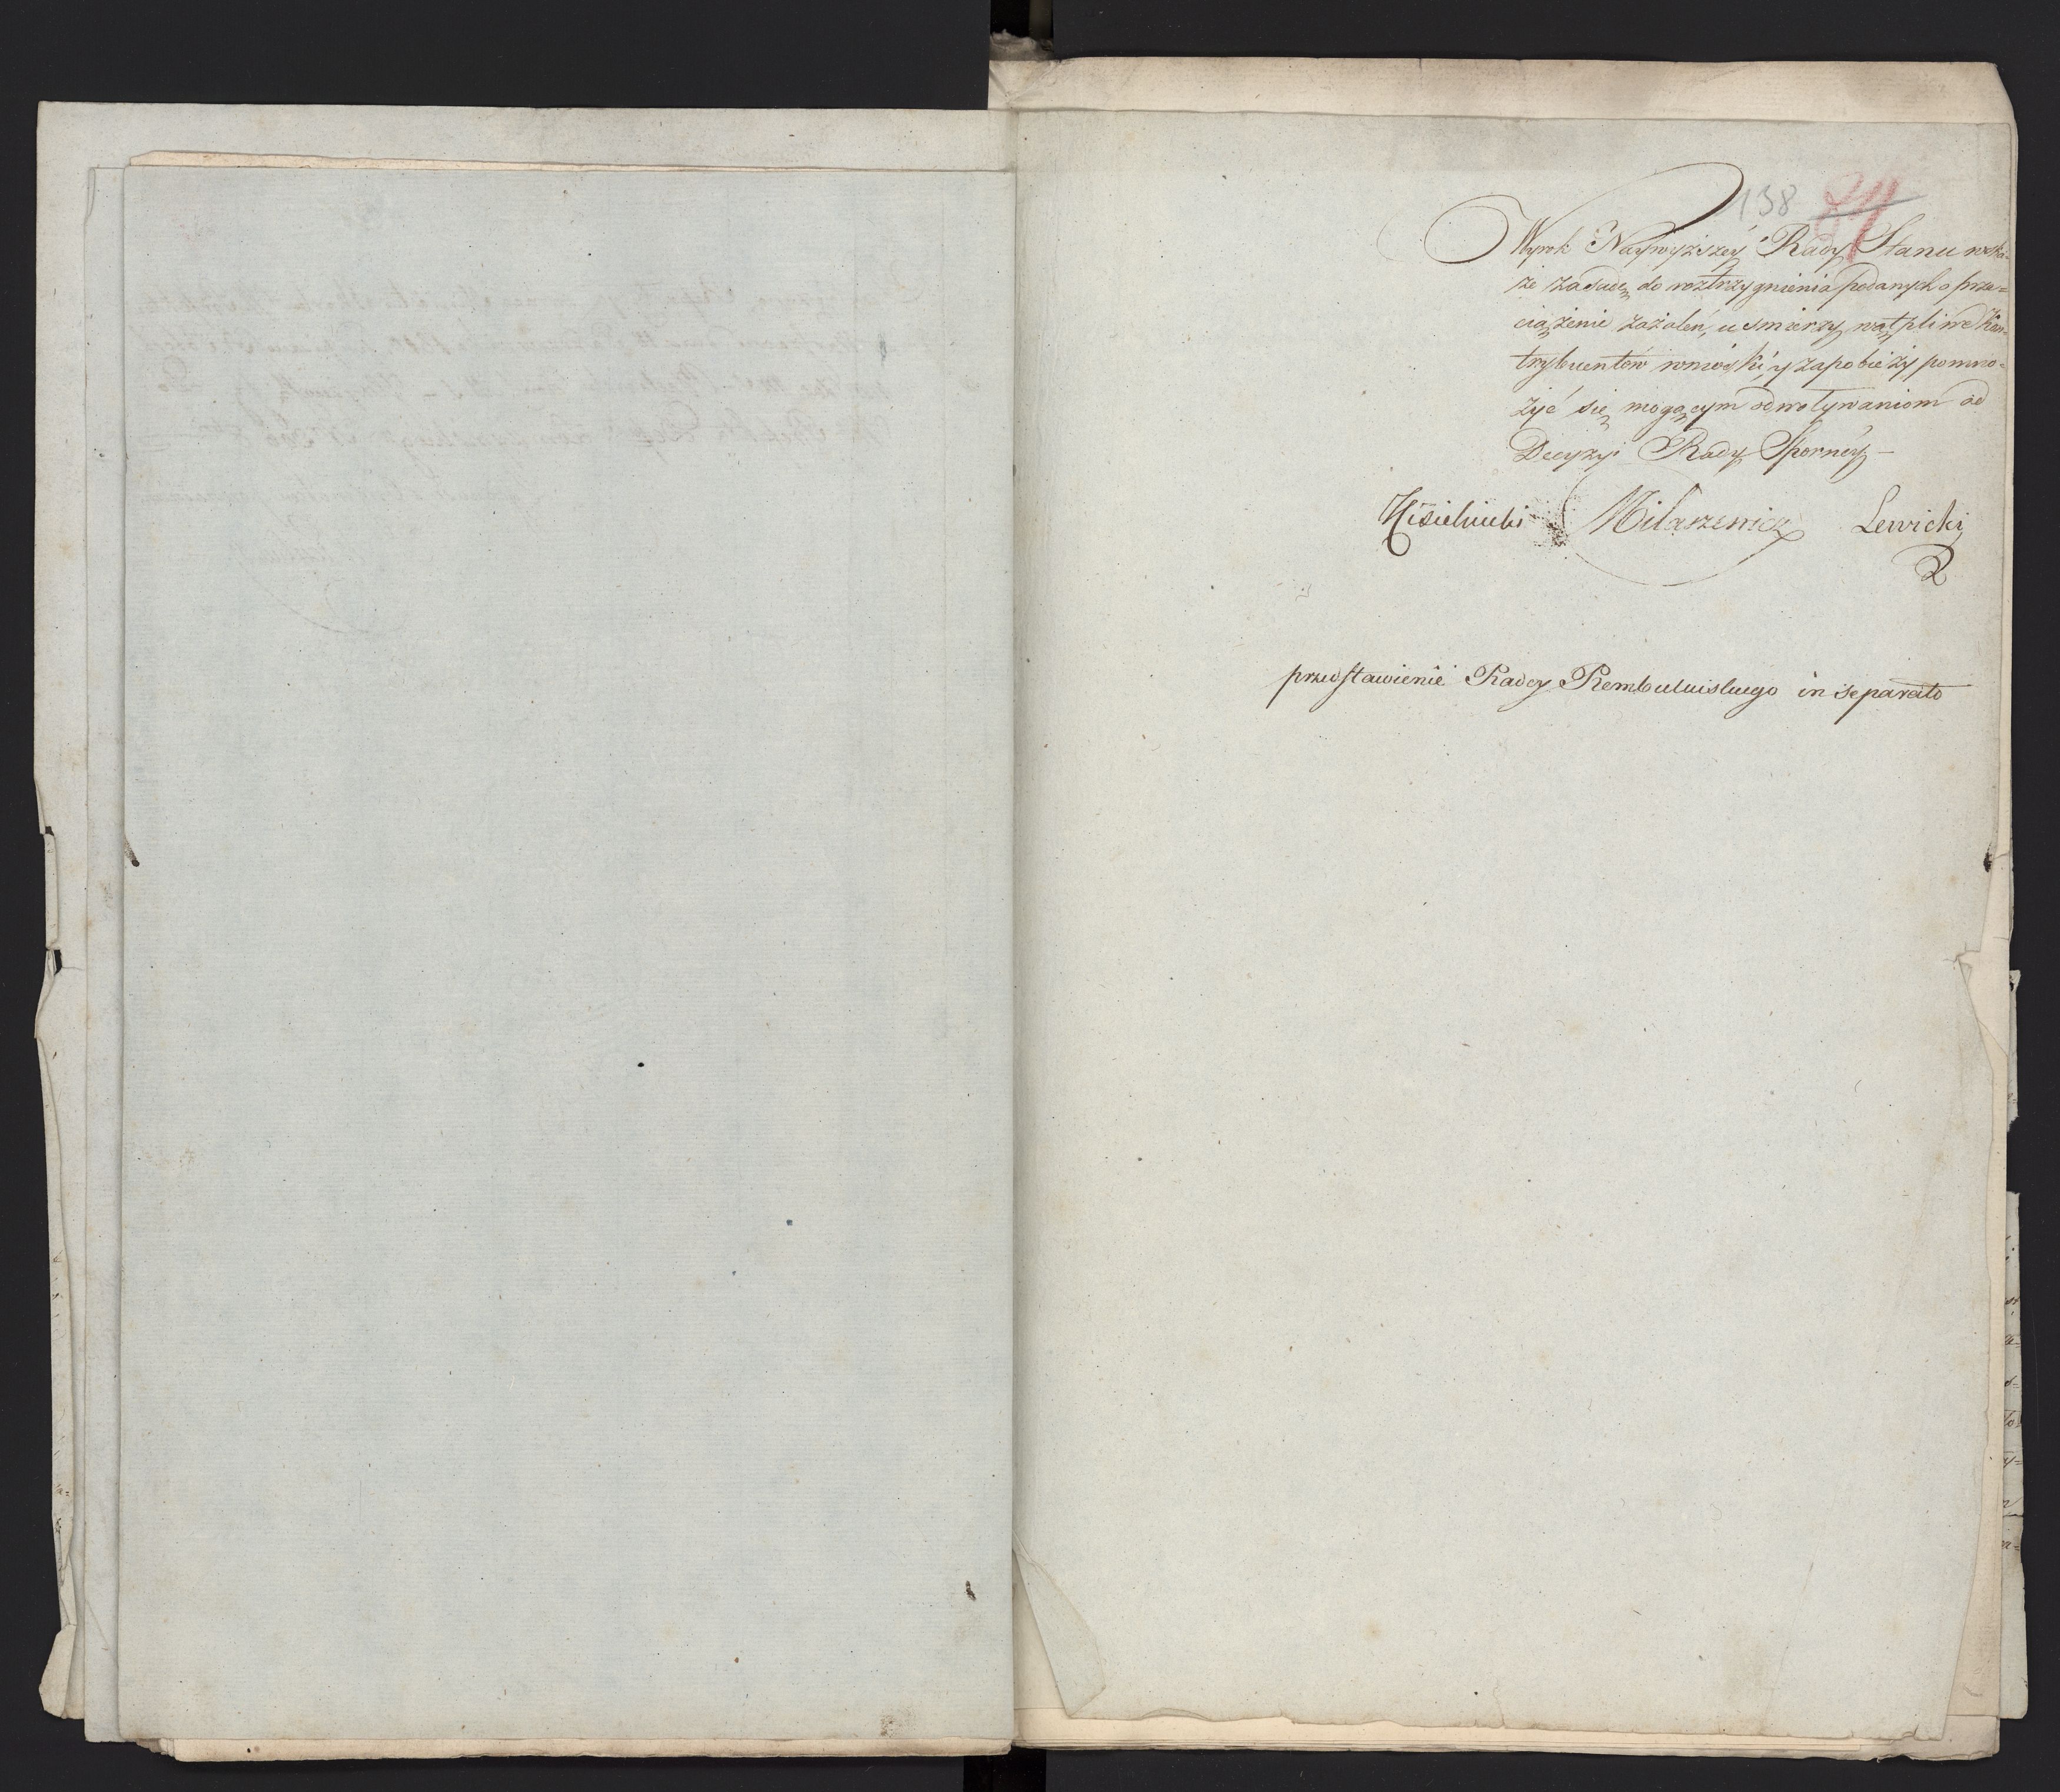 138
Wyrok Naywyższey Rady Stanu wska=
że zasadę do roztrzygnienia podanych o prze=
ciążenie zażaleń, usmierzy wątpliwe Kon=
trybuentów wnioski y zapobieży pomno=
żyć się mogącym odwoływaniom od
Decyzyi Rady Sporney –
Kisielnicki Milaszewicz Lewicki
przedstawienie Radcy Rembielinskiego in separato